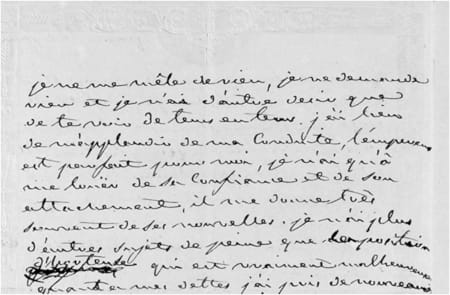 je ne me mêle de rien, je ne demande
rien et je n'ais d'autre desir que
de te voir de tems en tems. j'ai lieu
de m'applaudir de ma Conduite, l'empereur
est parfait pour moi, je n'ai qu'à
me louër de sa Confiance et de son
attachement, il me donne très
souvent de ses nouvelles. je n'ai plus
d'autres sujets de peine que la position
d'hortense qui est vraiment malheureuse
mes dettes j'ai puis de nouveaux